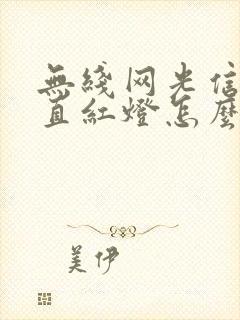 無綫网光信
直紅燈怎麼
美伊